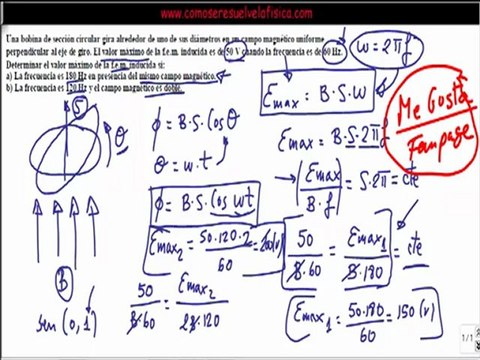 www.comoseresuelvelafisica.com
Una bobina de sección circular gira alrededor de uno de sus diámetros en un campo magnético uniforme
perpendicular al eje de giro. El valor máximo de la f.e.m. inducida es de 50 V cuando la frecuencia es de 60 Hz.
Determinar el valor máximo de la f.e.m. inducida si:
a) La frecuencia es 180 Hz en presencia del mismo campo magnético.
b) La frecuencia es 120 Hz y el campo magnético es doble.
ω = 2πf
Emax = B·S·ω
Me Gosta
Fanpage
S
θ
ϕ = B·S·Cosθ
θ = ω·t
ϕ = B·S·Cos ωt
Emax = B·S·2πf
Emax / B·f = S·2π = cte
Emax2 = 50·120·2 / 60 = 200(V)
50 / B·60 = Emax1 / B·180 = cte
B
50 / B·60 = Emax2 / 2B·120
sen (0,1)
Emax1 = 50·180 / 60 = 150 (V)
1/1